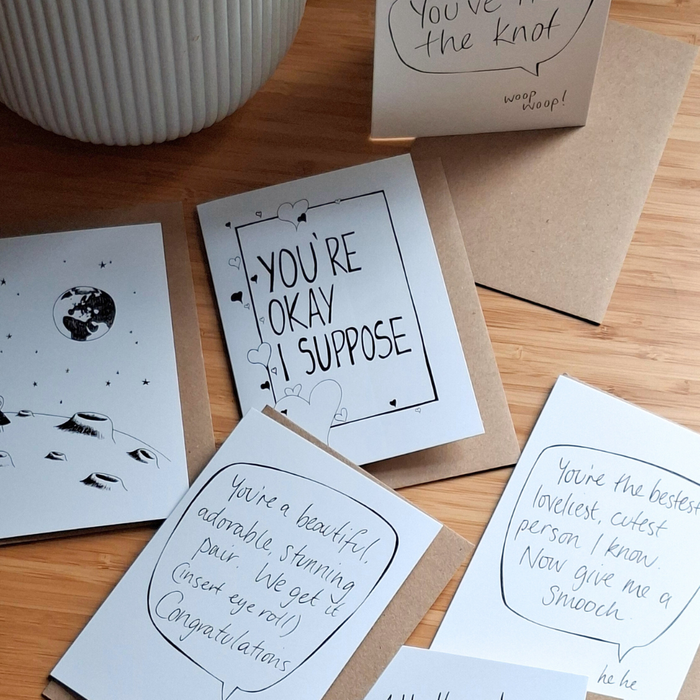 You've
the knot
woop
woop!
YOU'RE
OKAY
I SUPPOSE
You're a beautiful,
adorable, stunning
pair. We get it
(insert eye roll)
Congratulations
You're the bestest
loveliest, cutest
person I know.
Now give me a
smooch
he he